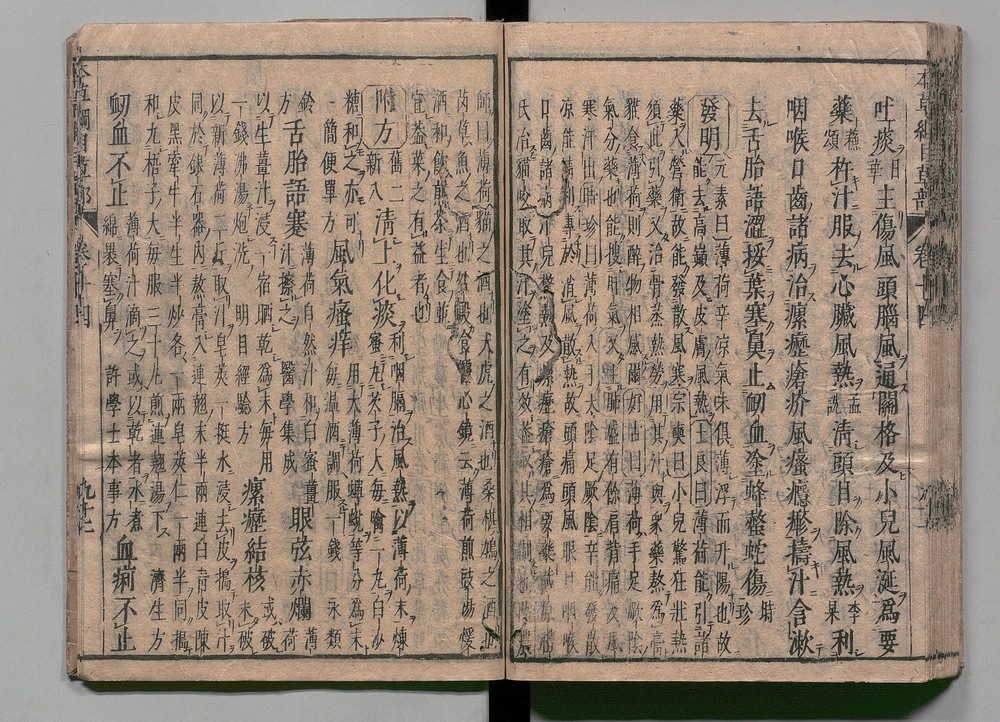 本草綱目草部 卷十四
吐痰曰華主傷風頭腦風通關格及小兒風涎爲要
藥蘇頌杵汁服去心臟風熱孟詵清頭目除風熱李杲利
咽喉口齒諸病治瘰癧瘡疥風瘙癮㾦擣汁含漱
去舌胎語澀挼葉塞鼻止衂血塗蜂螫蛇傷時珍
發明元素曰薄荷辛涼氣味俱薄浮而升陽也故
能去高巔及皮膚風熱士良曰薄荷能引諸
藥入營衛故能發散風寒宗奭曰小兒驚狂壯熱
須此引藥又治骨蒸熱勞用其汁與衆藥熬爲膏
猫食薄荷則醉物相感爾好古曰薄荷手足厥陰
氣分藥也能搜肝氣又主肺盛有餘肩背痛及風
寒汗出時珍曰薄荷入手太陰足厥陰辛能發散
涼能清利專於消風散熱故頭痛頭風眼目咽喉
口齒諸病小兒驚熱及瘰癧瘡疥爲要藥戴原禮
氏治猫咬取其汁塗之有效蓋取其相制也
師曰薄荷猫之酒也犬虎之酒也桑椹鳩之酒也
䓪草魚之酒也昝殷食醫心鏡云薄荷煎豉湯煖
酒和飲煎茶生食並宜蓋菜之有益者也
附方舊二新入清上化痰利咽膈治風熱以薄荷末煉
蜜丸芡子大每噙一丸白沙
糖和之亦可簡便單方風氣瘙痒用大薄荷蟬蛻等分爲末
每温酒調服一錢永類
鈐方舌胎語蹇薄荷自然汁和白蜜薑
汁擦之醫學集成眼弦赤爛薄荷
以生薑汁浸一宿晒乾爲末每用
一錢沸湯炮洗明目經驗方瘰癧結核或破未破
以新薄荷二斤取汁皂莢一挺水浸去皮搗取汁
同於銀石器内熬膏入連翹末半兩連白青皮陳
皮黑牽牛半生半炒各一兩皂莢仁一兩半同搗
和丸梧子大每服三十丸煎連翹湯下濟生方
衂血不止薄荷汁滴之或以乾者水煮
綿裹塞鼻許學士本事方血痢不止
本草綱目草部 卷十四 九十二